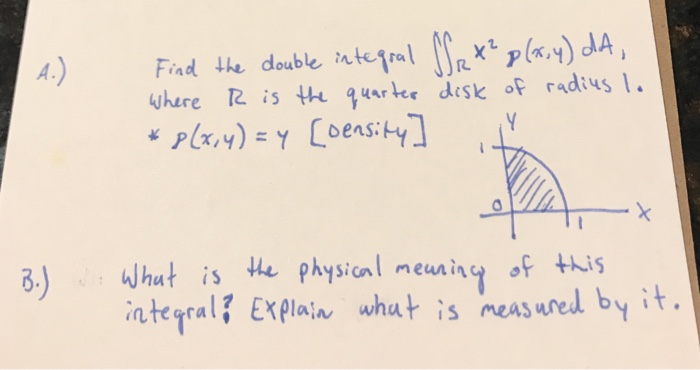 A.) Find the double integral ∬_R x² ρ(x,y) dA,
where R is the quarter disk of radius 1.
* ρ(x,y) = y [Density]
y
1
0
x
1
B.) What is the physical meaning of this
integral? Explain what is measured by it.